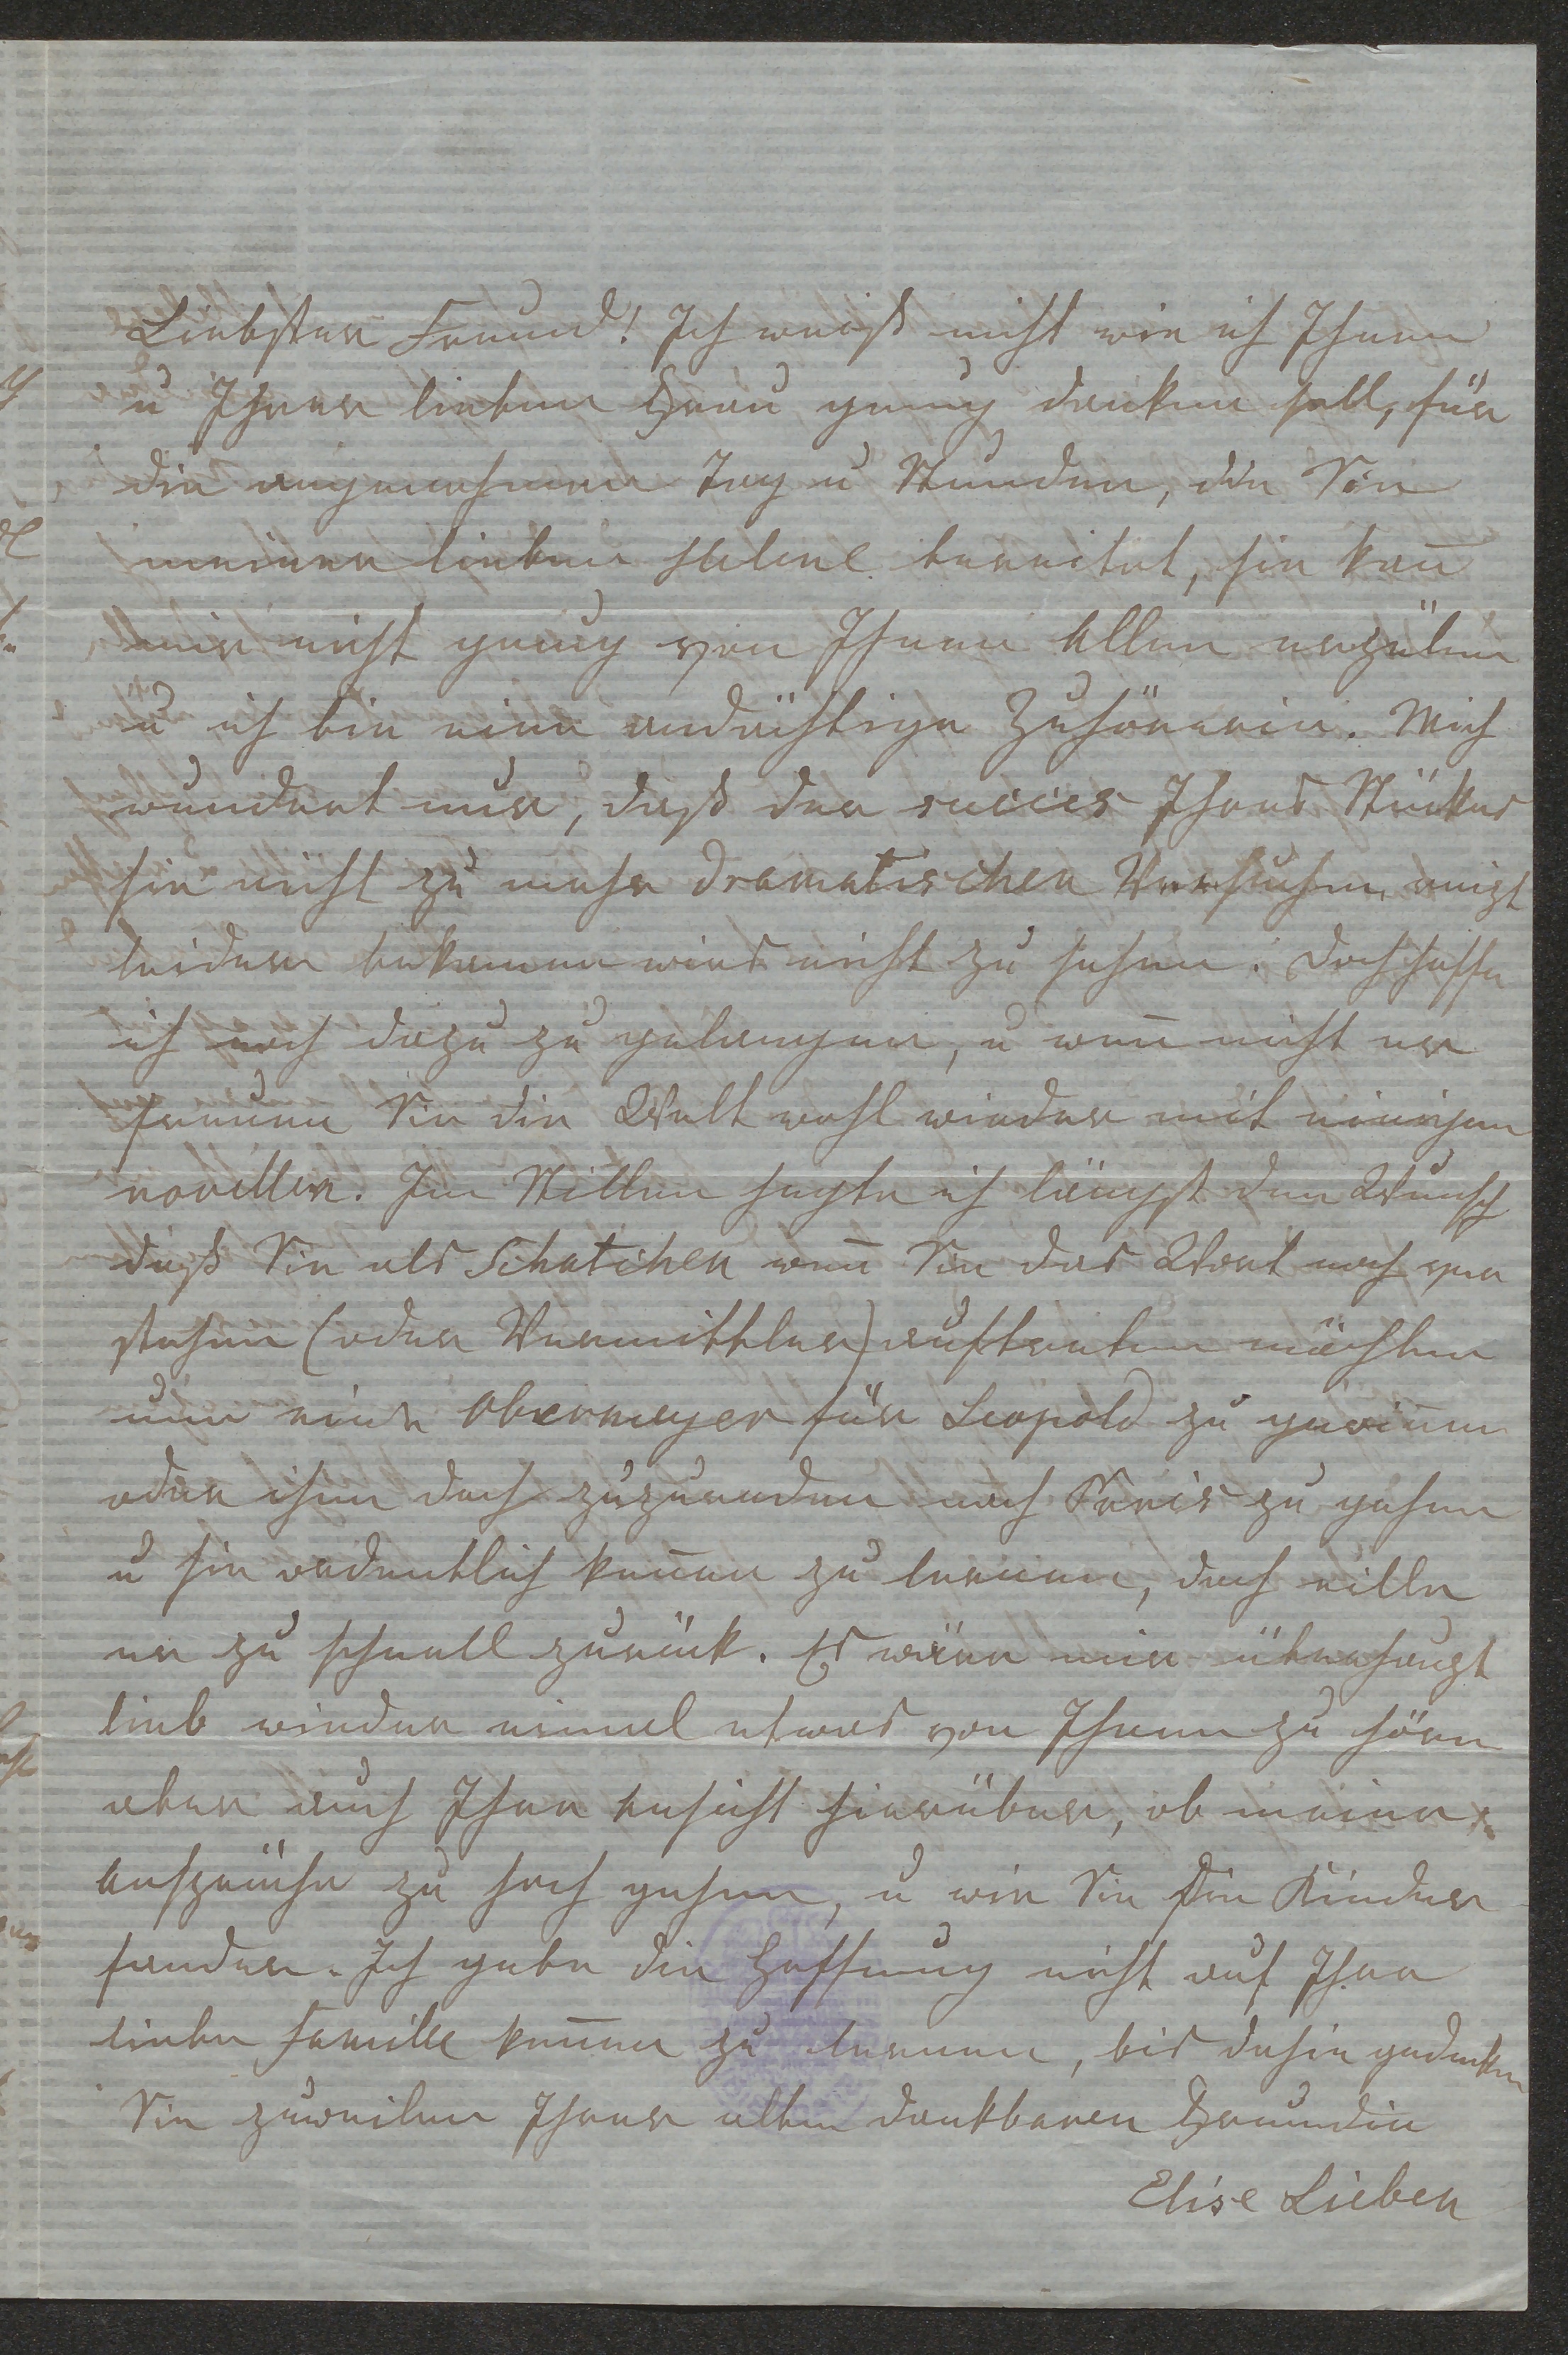 Liebster Freund! Ich weiß nicht wie ich Ihnen
u Ihrer lieben Frau genug danken soll, für
die angenehmen Tag u Stunden, die Sie
meiner lieben Helene bereitet, sie kan̄
mir nicht genug von Ihnen Allen erzälen
u ich bin eine andächtige Zuhörerin. Mich
wundert nur, daß der succes Ihres Stückes
sie nicht zu mehr dramatischen Versuchen reizt
leider bekamen wirs nicht zu sehen. Doch hoffe
ich noch dazu zu gelangen, u wen̄ nicht er
freuen Sie die Welt wohl wieder mit einigen
novellen. Im Stillen hegte ich längst den Wunsch
daß Sie als Schatchen wen̄ Sie das Wort noch ver
stehen (oder Vermittler) auftreten möchten
um eine Obermayer für Leopold zu gewin̄en
oder ihm doch zuzureden nach Paris zu gehen
u sie ordentlich ken̄en zu lernen, doch eilte
er zu schnell zurück. Es wäre mir überhaupt
lieb wieder einmal etwas von Ihnen zu hören
aber auch Ihre Ansicht hierüber, ob meine
Ansprüche zu hoch gehen, u wie Sie die Kinder
fanden. Ich gebe die Hoffnung nicht auf Ihre
liebe Familie ken̄en zu lernen, bis dahin gedenken
Sie zuweilen Ihrer alten dankbaren Freundin
Elise Lieben